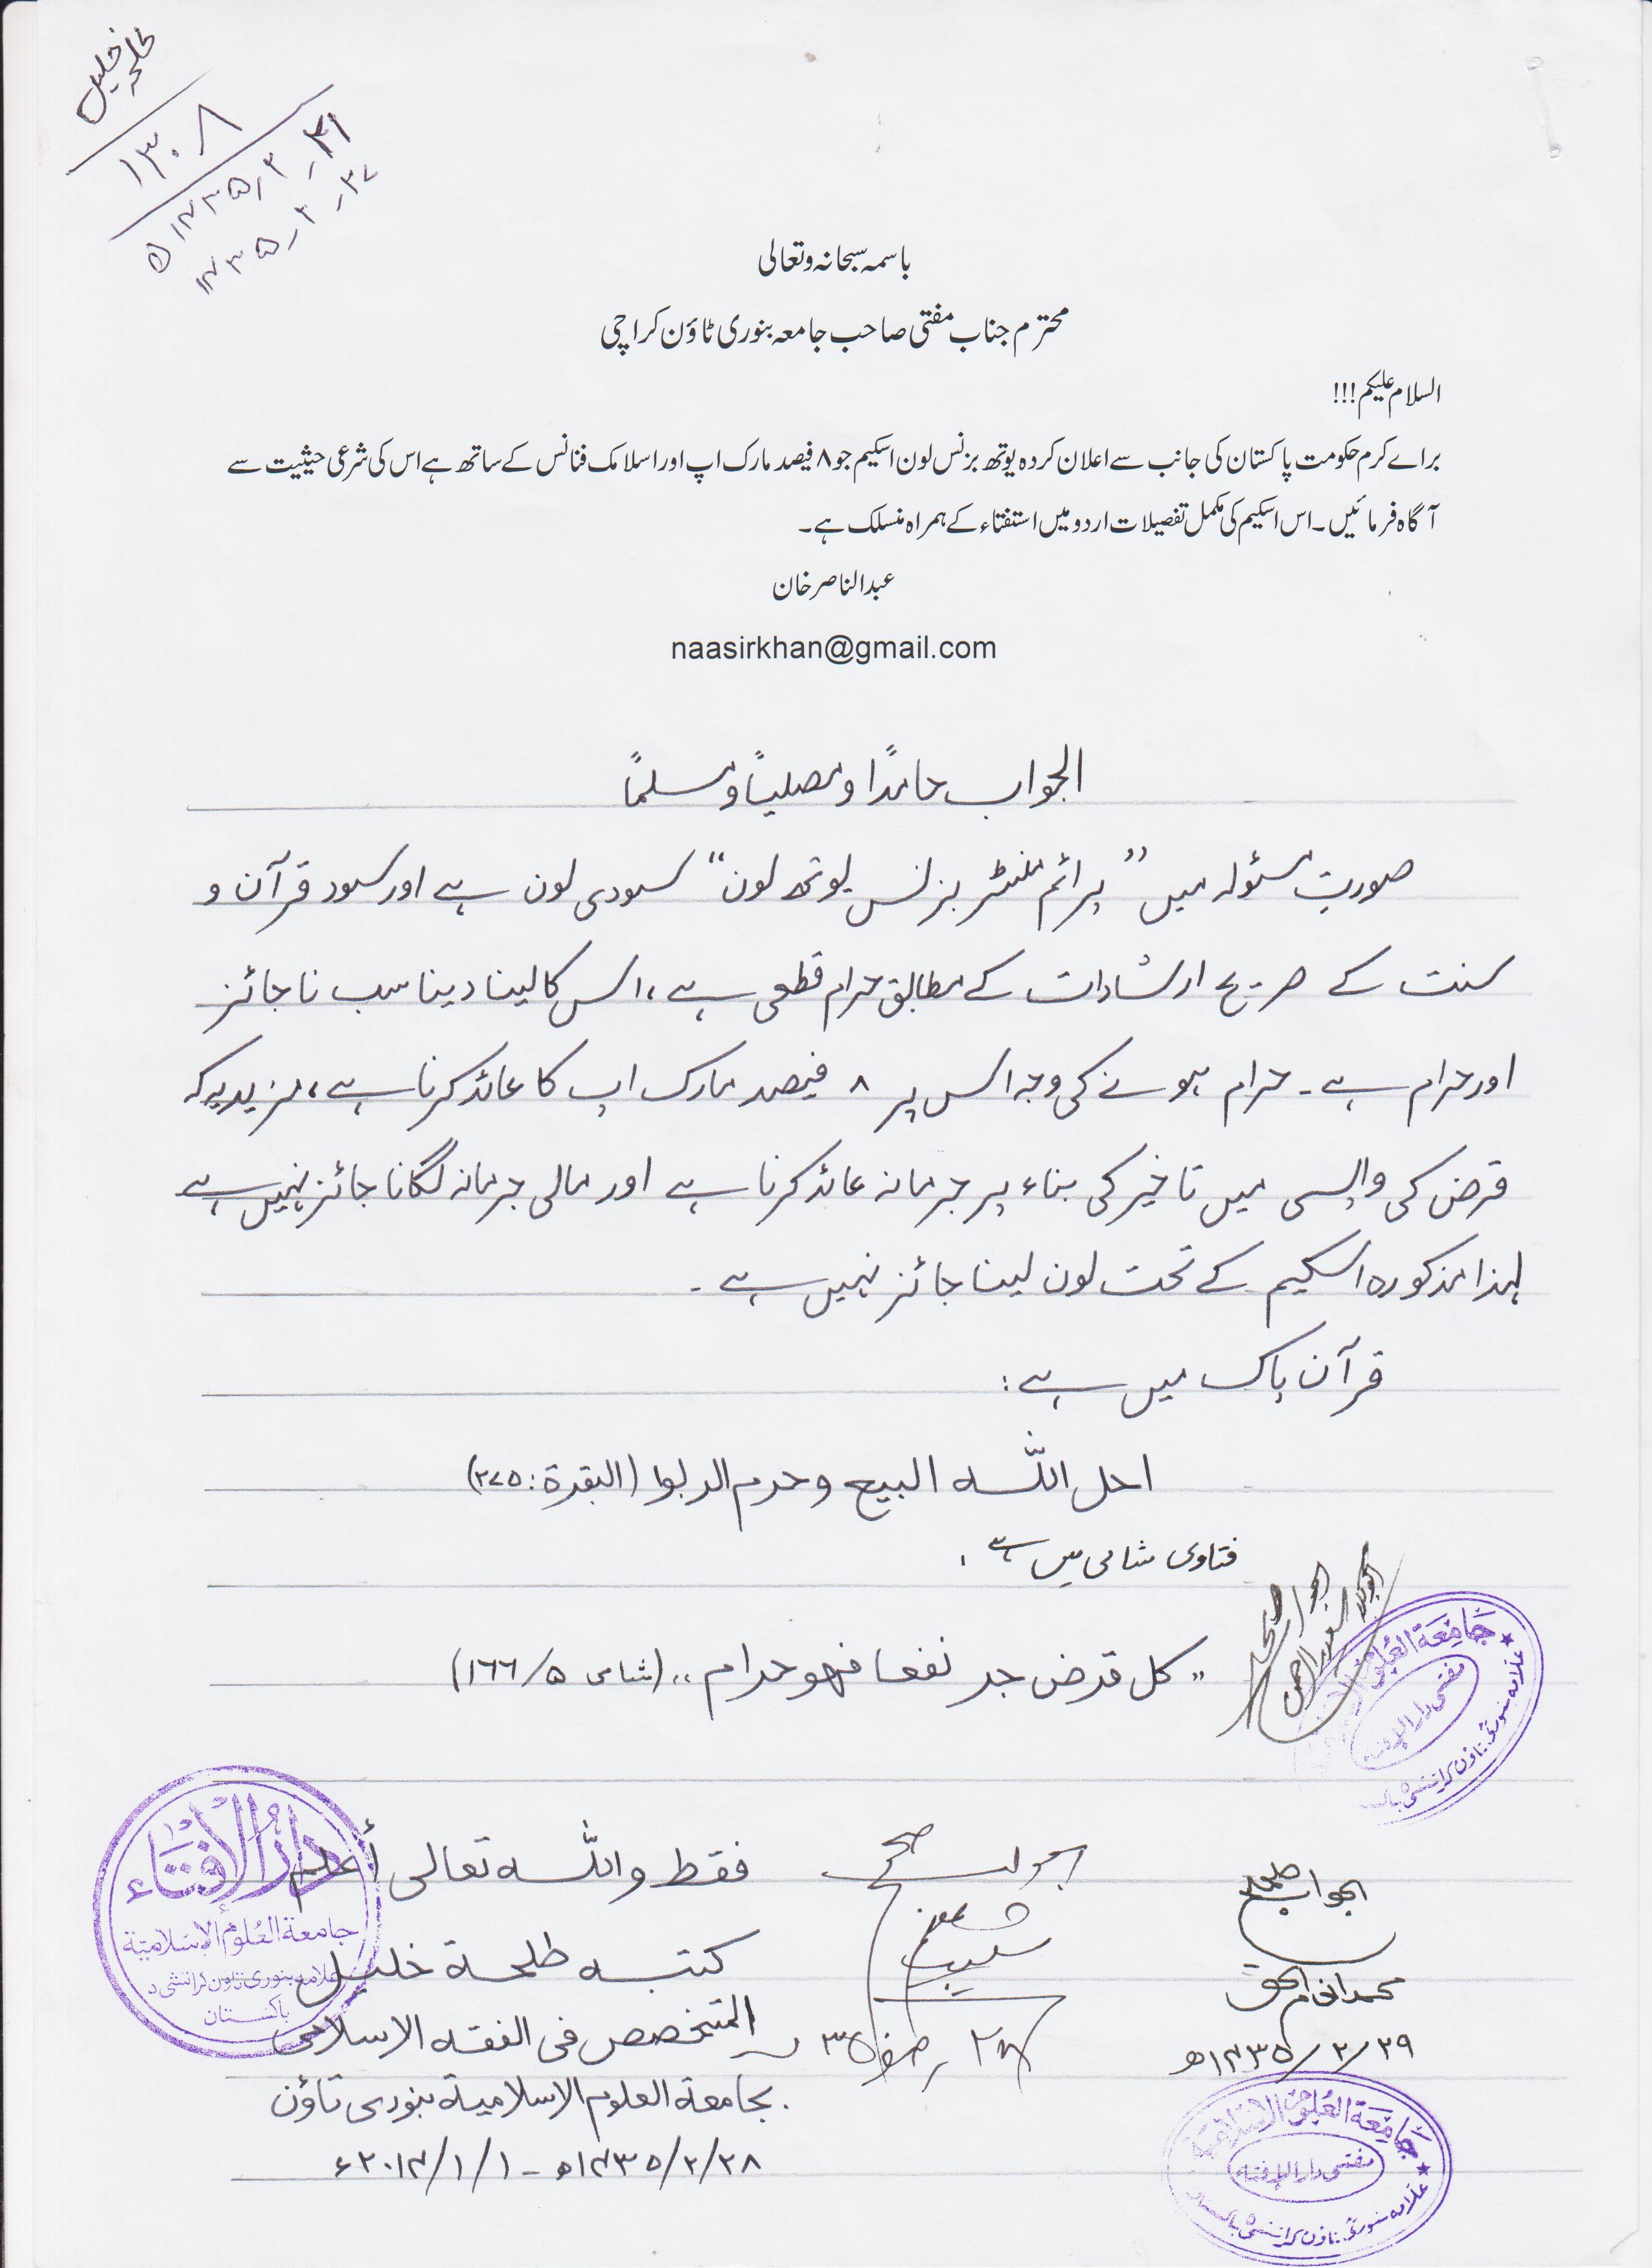 طلحہ خلیل
۱۳۰۸
باسمہ سبحانہ وتعالی
محترم جناب مفتی صاحب جامعہ بنوری ٹاؤن کراچی
السلام علیکم!!!
براے کرم حکومت پاکستان کی جانب سے اعلان کردہ یوتھ بزنس لون اسکیم جو ۸ فیصد مارک اپ اور اسلامک فنانس کے ساتھ ہے اس کی شرعی حیثیت سے
آگاہ فرمائیں۔ اس اسکیم کی مکمل تفصیلات اردو میں استفتاء کے ہمراہ منسلک ہے۔
عبدالناصر خان
naasirkhan@gmail.com
الجواب حامدًا ومصلیاً ومسلماً
صورتِ مسئولہ میں ”پرائم منسٹر بزنس یوتھ لون“ سودی لون ہے اور سود قرآن و
سنت کے صریح ارشادات کے مطابق حرام قطعی ہے، اس کا لینا دینا سب ناجائز
اور حرام ہے۔ حرام ہونے کی وجہ اس پر ۸ فیصد مارک اپ کا عائد کرنا ہے، مزید یہ کہ
قرض کی واپسی میں تاخیر کی بناء پر جرمانہ عائد کرنا ہے اور مالی جرمانہ لگانا جائز نہیں ہے
لہذا مذکورہ اسکیم کے تحت لون لینا جائز نہیں ہے۔
قرآن پاک میں ہے:
احل اللّٰہ البیع وحرم الربوا (البقرة: ۲۷۵)
فتاوی شامی میں ہے:
”کل قرض جر نفعا فهو حرام“ (شامی ۵/۱۶۶)
الجواب صحیح
جَامِعَة العُلُوم الإسلامية
مفتی دار الإفتاء
علامہ بنوری ٹاؤن کراتشی ۵ پاکستان
فقط واللّٰہ تعالی أعلم
کتبہ طلحة خلیل
المتخصص فی الفقه الاسلامی
بجامعة العلوم الاسلامية بنوری تاؤن
۲۸/۲/۱۴۳۵ھ - ۱/۱/۲۰۱۴ء
دار الإفتاء
جامعة العلوم الإسلامية
علامہ بنوری تاون کراتشی ۵
باکستان
الجواب صحیح
۲۸ صفر ۳۵
الجواب صحیح
محمد انعام الحق
۲۹/۲/۱۴۳۵ھ
جَامِعَة العُلُوم الإسلامية
مفتی دار الإفتاء
علامہ بنوری ٹاؤن کراتشی ۵ پاکستان